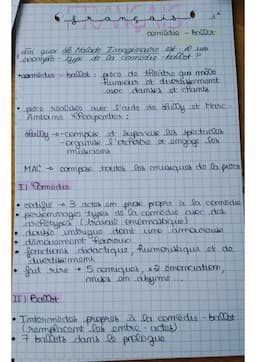 français
comédie - ballet
En quoi Le Malade Imaginaire est-il un
exemple type de la comédie ballet ?
comédie - ballet : pièce de théâtre qui mêle
humour et divertissement
avec danses et chants
pièce réalisée avec l'aide de Lully et Marc-
Antoine Charpentier :
Lully → compose et supervise les spectacles
- organise l'orchestre et engage les
musiciens
MAC → compose toutes les musiques de la pièce
I) Comédie
codifié → 3 actes en prose propre à la comédie
personnages types de la comédie avec des
archétypes (travail onomastique)
double intrigue dont une amoureuse
dénouement heureux
fonctions didactique, humoristique et de
divertissement
fait rire → 5 comiques, x2 énonciation,
mises en abyme...
II) Ballet
Intermèdes propres à la comédie - ballet
(remplacent les entre-actes)
7 ballets dans le prologue